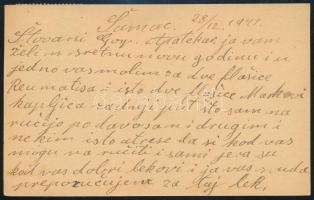 Šamac. 28/12. 1941.
Štovani Gos. Apotekar ja vam
želim sretnu novu godinu i u
jedno vas molim za dve flašice
Reumatisa i isto dve flašice
kapljica zadnji put što sam na
ručijo po davo san i drugim i
nekim isto da si kod vas
mogu na ručiti i sami jer su
kod vas dobri lekovi i ja vas svuda
preporučujem za taj lek.